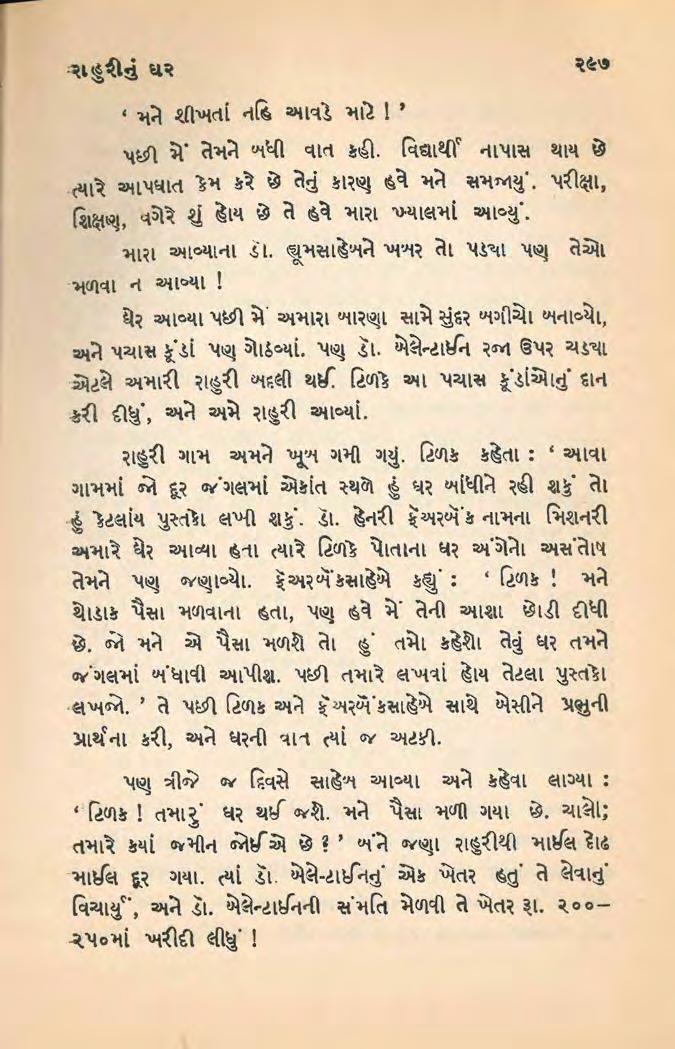 રાહુરીનું ઘર ૨૯૭
‘ મને શીખતાં નહિ આવડે માટે ! ’
પછી મેં તેમને બધી વાત કહી. વિદ્યાર્થી નાપાસ થાય છે
ત્યારે આપઘાત કેમ કરે છે તેનું કારણ હવે મને સમજાયું. પરીક્ષા,
શિક્ષણ, વગેરે શું હોય છે તે હવે મારા ખ્યાલમાં આવ્યું.
મારા આવ્યાના ડૉ. હ્યૂમસાહેબને ખબર તો પડ્યા પણ તેઓ
મળવા ન આવ્યા !
ઘેર આવ્યા પછી મેં અમારા બારણા સામે સુંદર બગીચો બનાવ્યો,
અને પચાસ કૂંડાં પણ ગોઠવ્યાં. પણ ડૉ. બેલેન્ટાઈન રજા ઉપર ચડ્યા
એટલે અમારી રાહુરી બદલી થઈ. ટિળકે આ પચાસ કૂંડાંઓનું દાન
કરી દીધું, અને અમે રાહુરી આવ્યાં.
રાહુરી ગામ અમને ખૂબ ગમી ગયું. ટિળક કહેતા : ‘ આવા
ગામમાં જો દૂર જંગલમાં એકાંત સ્થળે હું ઘર બાંધીને રહી શકું તો
હું કેટલાંય પુસ્તકો લખી શકું. ડૉ. હેનરી ફૅઅરબૅંક નામના મિશનરી
અમારે ઘેર આવ્યા હતા ત્યારે ટિળકે પોતાના ઘર અંગેનો અસંતોષ
તેમને પણ જણાવ્યો. ફૅઅરબૅંકસાહેબે કહ્યું : ‘ ટિળક ! મને
થોડાક પૈસા મળવાના હતા, પણ હવે મેં તેની આશા છોડી દીધી
છે. જો મને એ પૈસા મળશે તો હું તમો કહેશો તેવું ઘર તમને
જંગલમાં બંધાવી આપીશ. પછી તમારે લખવાં હોય તેટલા પુસ્તકો
લખજો. ’ તે પછી ટિળક અને ફૅઅરબૅંકસાહેબે સાથે બેસીને પ્રભુની
પ્રાર્થના કરી, અને ઘરની વાત ત્યાં જ અટકી.
પણ ત્રીજે જ દિવસે સાહેબ આવ્યા અને કહેવા લાગ્યા :
‘ ટિળક ! તમારું ઘર થઈ જશે. મને પૈસા મળી ગયા છે. ચાલો;
તમારે કયાં જમીન જોઈએ છે ? ’ બંને જણા રાહુરીથી માઈલ દોઢ
માઈલ દૂર ગયા. ત્યાં ડૉ. બેલેન્ટાઈનનું એક ખેતર હતું તે લેવાનું
વિચાર્યું, અને ડૉ. બેલેન્ટાઈનની સંમતિ મેળવી તે ખેતર રૂા. ૨૦૦–
૨૫૦માં ખરીદી લીધું !